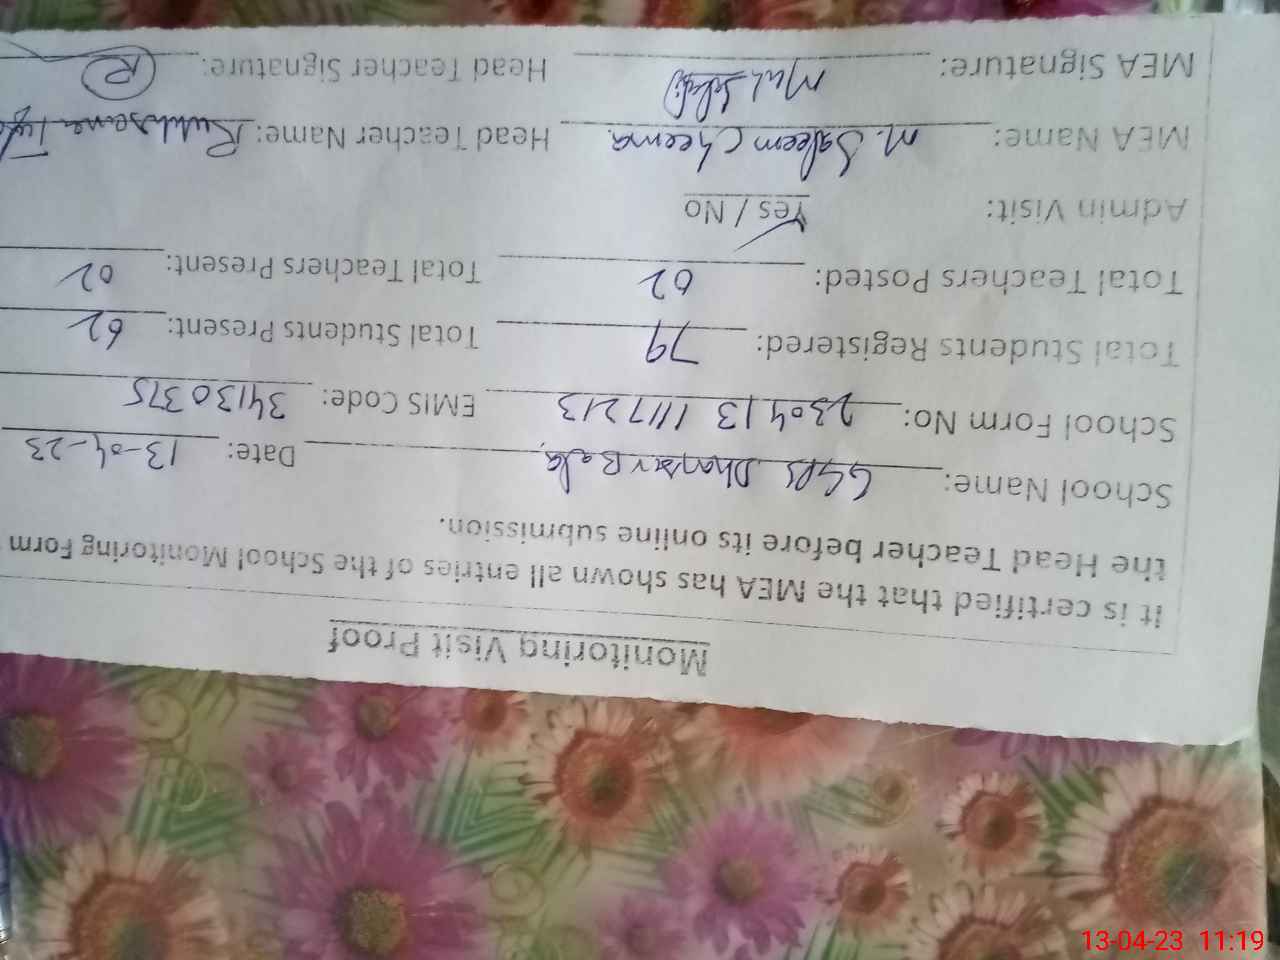 Monitoring Visit Proof
It is certified that the MEA has shown all entries of the School Monitoring Form
the Head Teacher before its online submission.
School Name: GGPS Dhapsar Bala Date: 13-04-23
School Form No: 230413 1117213 EMIS Code: 34130375
Total Students Registered: 79 Total Students Present: 62
Total Teachers Posted: 02 Total Teachers Present: 02
Admin Visit: Yes / No
MEA Name: M. Saleem Cheema Head Teacher Name: Rukhsana
MEA Signature: Head Teacher Signature: R
13-04-23 11:19